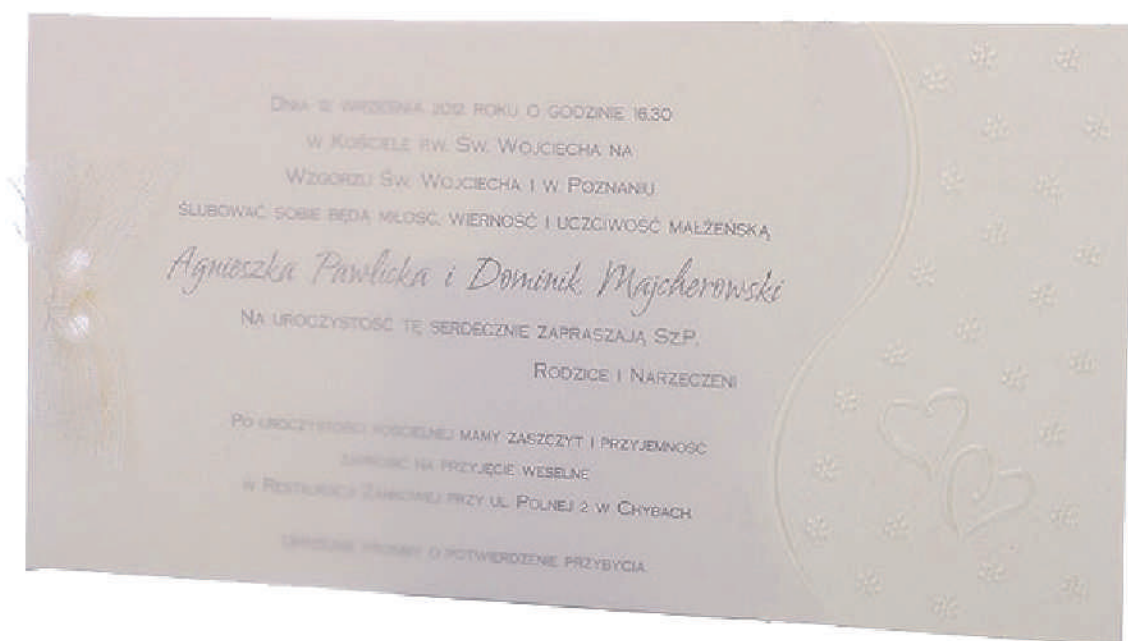 DNIA 12 WRZEŚNIA 2012 ROKU O GODZINIE 16.30
W KOŚCIELE P.W. ŚW. WOJCIECHA NA
WZGÓRZU ŚW. WOJCIECHA 1 W POZNANIU
ŚLUBOWAĆ SOBIE BĘDĄ MIŁOŚĆ, WIERNOŚĆ I UCZCIWOŚĆ MAŁŻEŃSKĄ
Agnieszka Pawlicka i Dominik Majcherowski
NA UROCZYSTOŚĆ TĘ SERDECZNIE ZAPRASZAJĄ SZ.P.
RODZICE I NARZECZENI
PO UROCZYSTOŚCI KOŚCIELNEJ MAMY ZASZCZYT I PRZYJEMNOŚĆ
ZAPROSIĆ NA PRZYJĘCIE WESELNE
W RESTAURACJI ZAMKOWEJ PRZY UL. POLNEJ 2 W CHYBACH.
UPRZEJMIE PROSIMY O POTWIERDZENIE PRZYBYCIA.